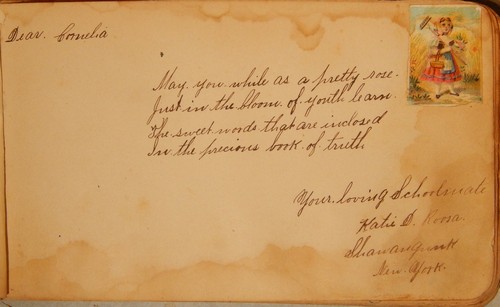 Dear Cornelia
May you while as a pretty rose.
Just in the bloom of youth learn.
The sweet words that are inclosed
In the precious book of truth
Your loving Schoolmate
Katie D. Roosa.
Shawangunk
New York.